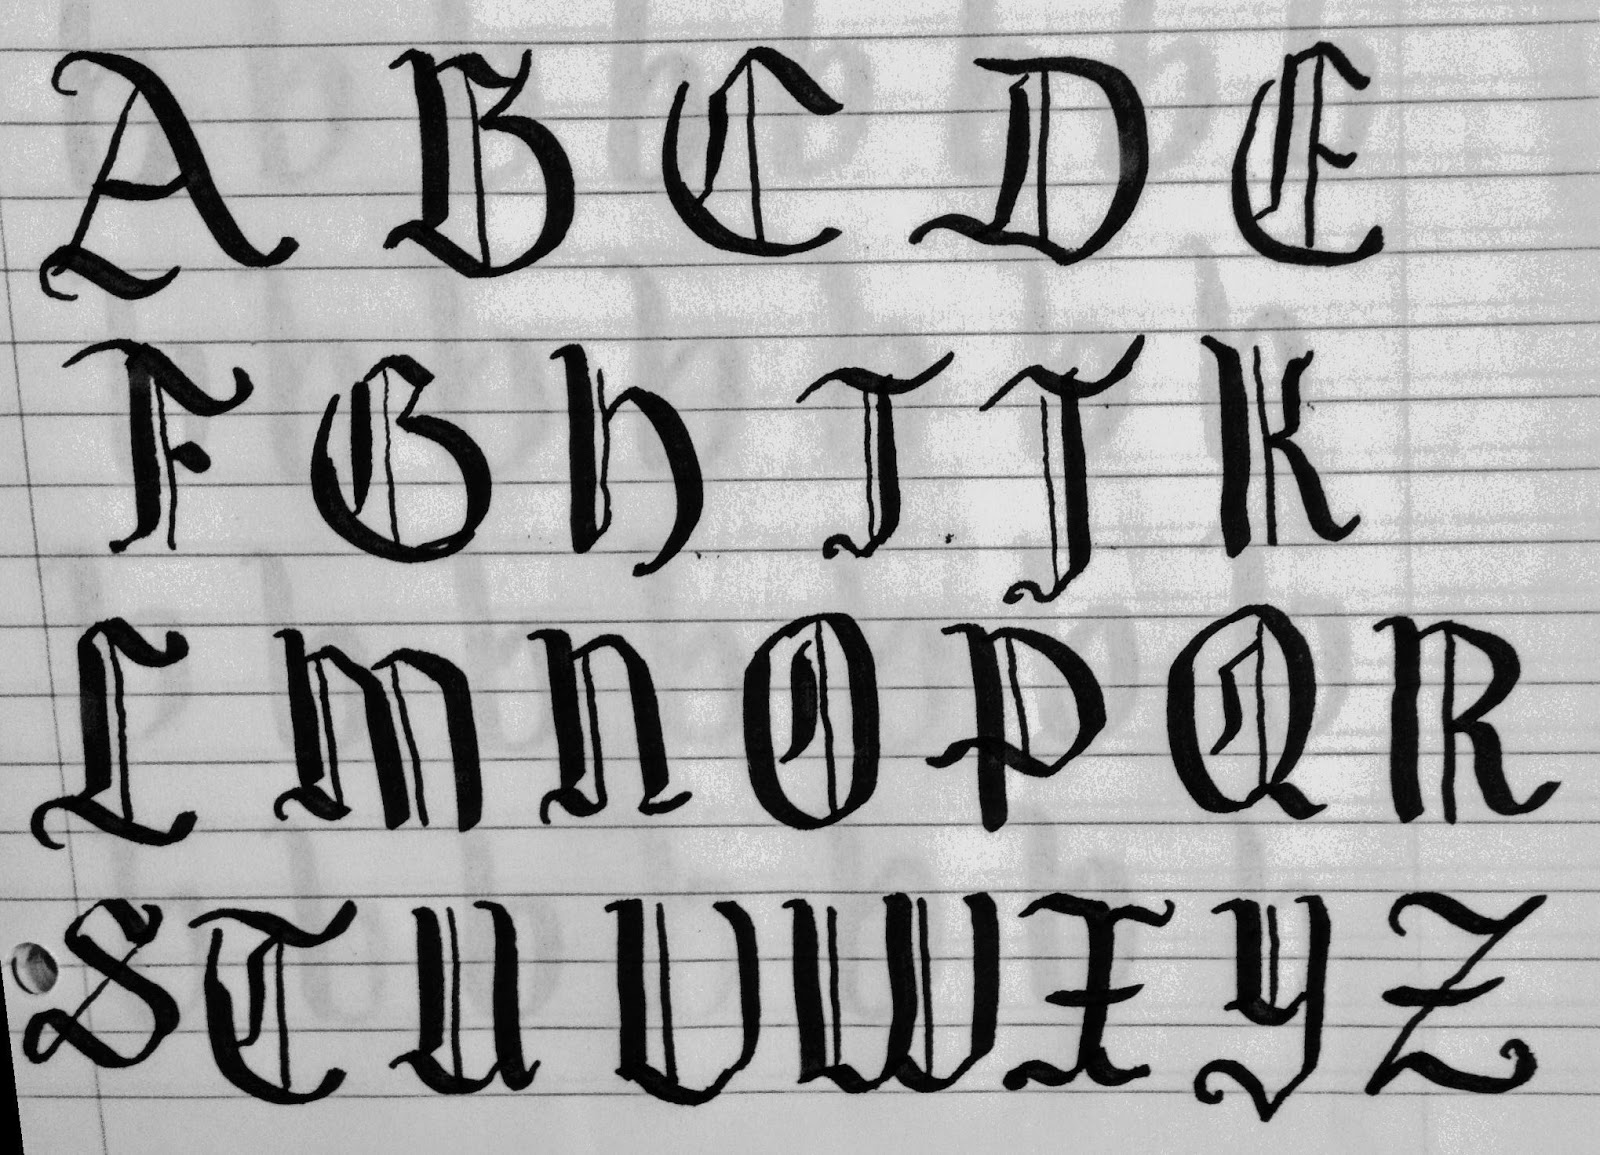 A B C D E
F G H I J K
L M N O P Q R
S T U V W X Y Z